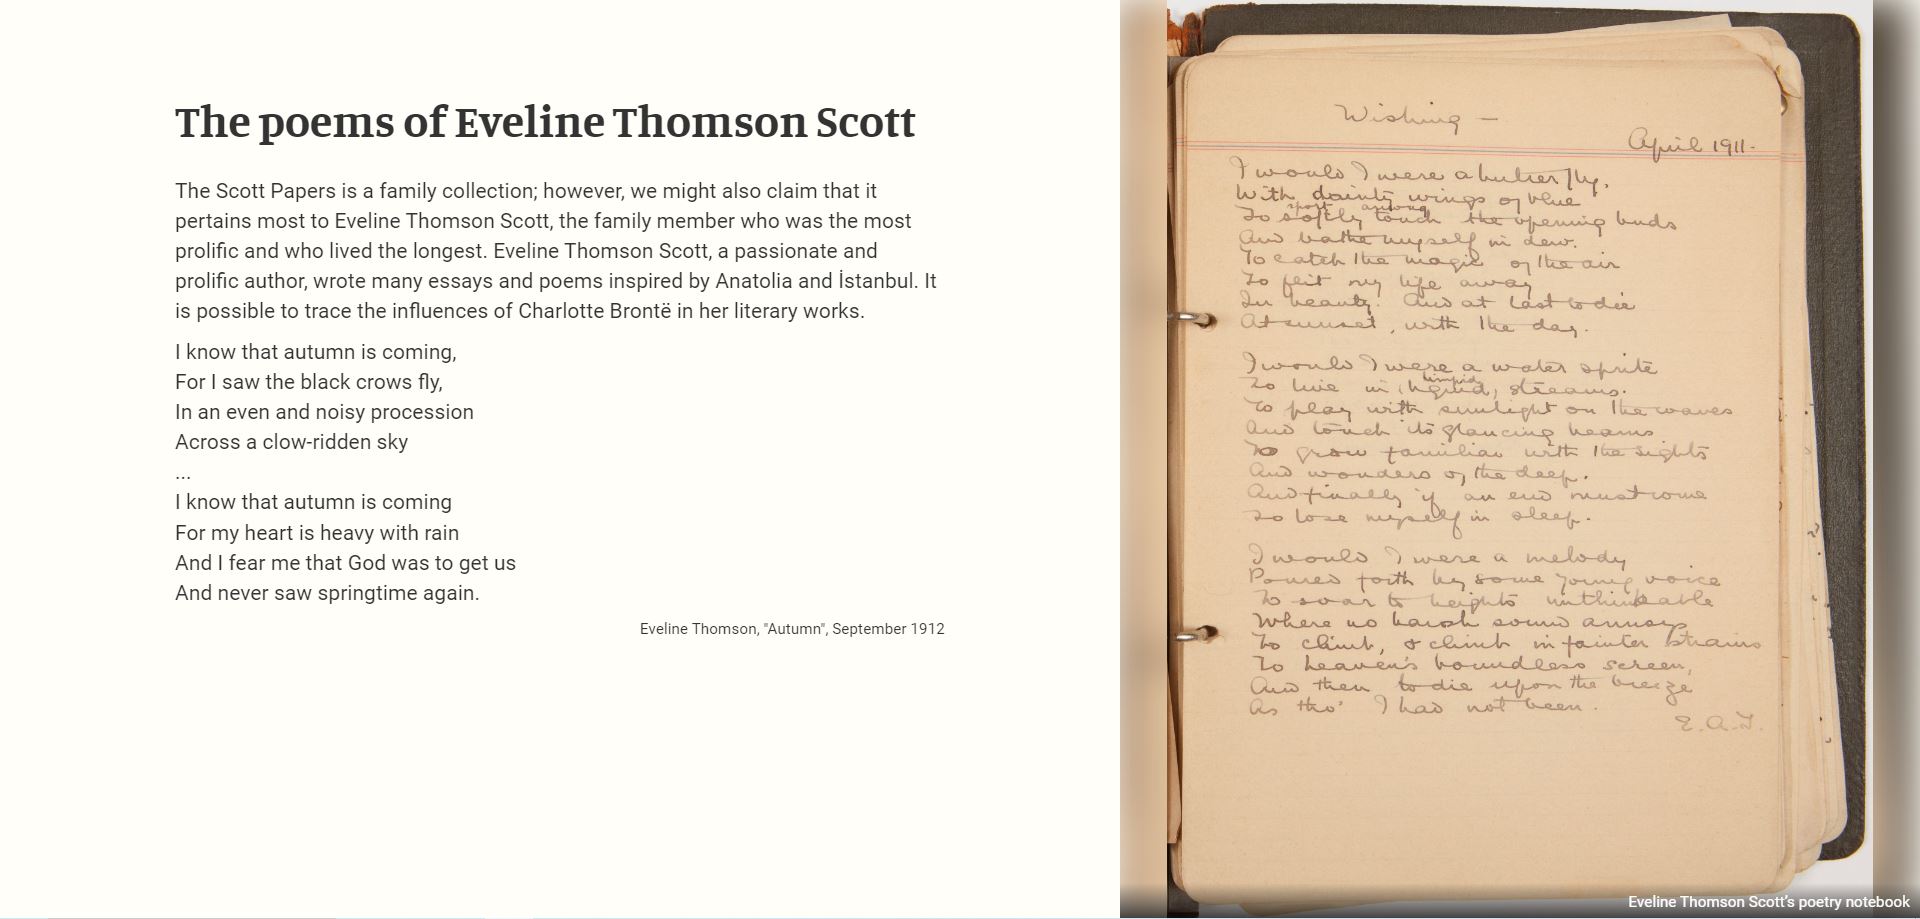 The poems of Eveline Thomson Scott
The Scott Papers is a family collection; however, we might also claim that it
pertains most to Eveline Thomson Scott, the family member who was the most
prolific and who lived the longest. Eveline Thomson Scott, a passionate and
prolific author, wrote many essays and poems inspired by Anatolia and İstanbul. It
is possible to trace the influences of Charlotte Brontë in her literary works.
I know that autumn is coming,
For I saw the black crows fly,
In an even and noisy procession
Across a clow-ridden sky
...
I know that autumn is coming
For my heart is heavy with rain
And I fear me that God was to get us
And never saw springtime again.
Eveline Thomson, "Autumn", September 1912
Wishing —
April 1911.
I would I were a butterfly,
With dainty wings of blue
sport among
To softly touch the opening buds
And bathe myself in dew.
To catch the magic of the air
To flit my life away
In beauty. And at last to die
At sunset, with the day.
I would I were a water sprite
limpid
To live in liquid, streams.
To play with sunlight on the waves
And touch its glancing beams
To grow familiar with the sights
And wonders of the deep.
And finally if an end must come
To lose myself in sleep.
I would I were a melody
Poured forth by some young voice
To soar to heights unthinkable
Where no harsh sound annoys
To climb, & climb in fainter strains
To heaven's boundless screen,
And then to die upon the breeze
As tho' I had not been.
E.A.T.
Eveline Thomson Scott's poetry notebook